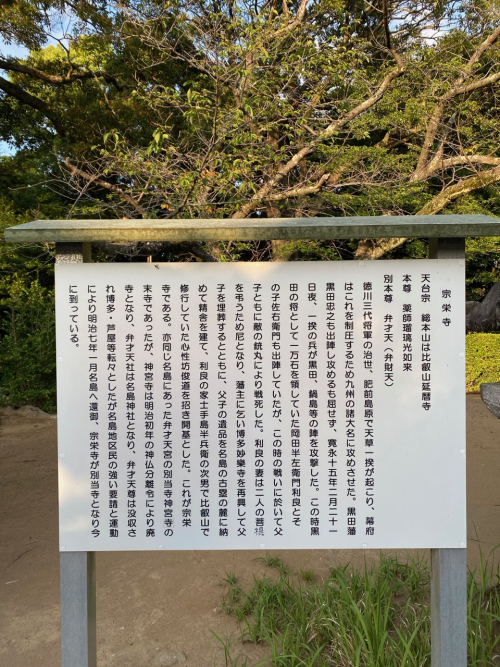 宗栄寺
天台宗 総本山は比叡山延暦寺
本尊 薬師瑠璃光如来
別本尊 弁才天(弁財天)
徳川三代将軍の治世、肥前島原で天草一揆が起こり、幕府
はこれを制圧するため九州の諸大名に攻めさせた。黒田藩
黒田忠之も出陣し攻めるも屈せず、寛永十五年二月二十一
日夜、一揆の兵が黒田、鍋島等の陣を攻撃した。この時黒
田の将として一万石を領していた岡田半左衛門利良とそ
の子佐右衛門も出陣していたが、この時の戦いに於いて父
子ともに敵の銃丸により戦死した。利良の妻は二人の菩提
を弔うため尼となり、藩主に乞い博多妙楽寺を再興して父
子を埋葬するとともに、父子の遺品を名島の古塁の麓に納
めて精舎を建て、利良の家士手島半兵衛の次男で比叡山で
修行していた心性坊俊道を招き開基とした。これが宗栄
寺である。亦同じ名島にあった弁才天宮の別当寺神宮寺の
末寺であったが、神宮寺は明治初年の神仏分離令により廃
寺となり、弁才天社は名島神社となり、弁才天尊は没収さ
れ博多・芦屋等転々としたが名島地区民の強い要請と運動
により明治七年一月名島へ還御、宗栄寺が別当寺となり今
に到っている。